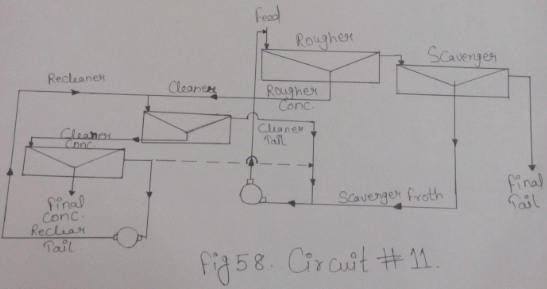 Feed
Rougher
Scavenger
Recleaner
Cleaner
Rougher
Conc.
Cleaner
Conc.
Cleaner
Tail
Final
Conc.
Reclear
Tail
Scavenger froth
Final
Tail
Fig 58. Circuit # 11.